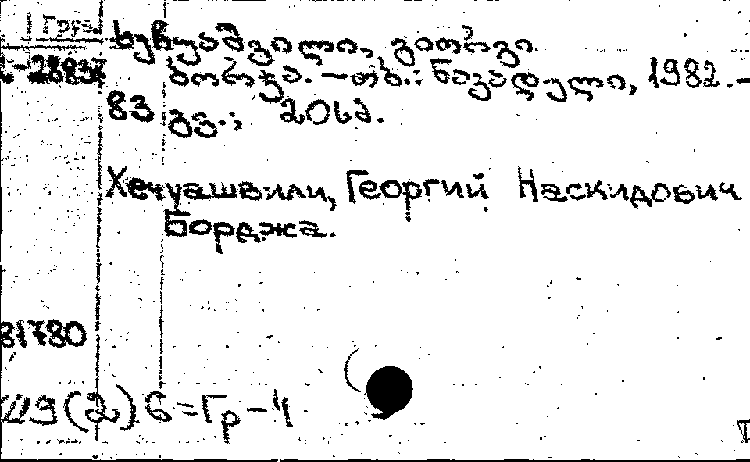 1 Груз.
ხეჩუაშვილი, გიორგი
ბორჯა. – თბ.: ნაკადული, 1982. –
83 გვ.; 20სმ.
Хечуашвили, Георгий Наскидович
Борджа.
81780
Ш9(2)6=Гр-4